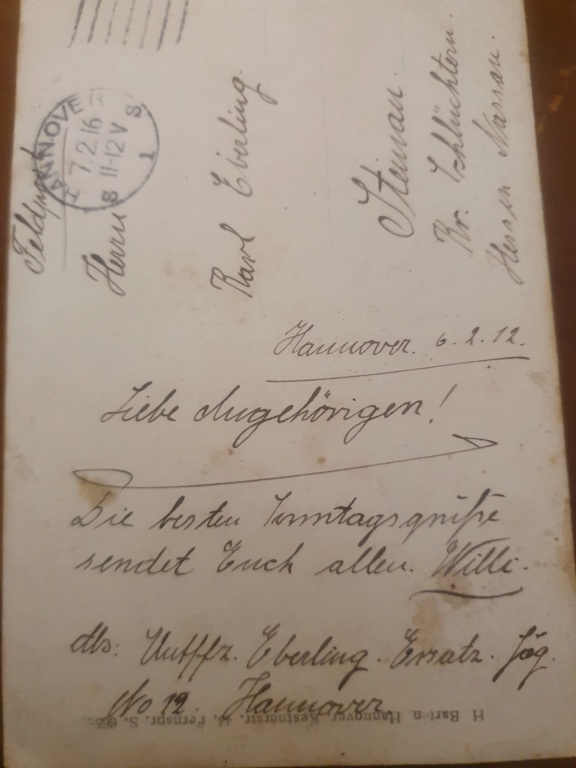 Feldpost
HANNOVER
7.2.16
11-12V
S 1 S
Herrn
Karl Eberling.
Steinau.
Kr. Schlüchtern.
Hessen Nassau.
Hannover. 6.2.12.
Liebe Angehörigen!
Die besten Sonntagsgrüße
sendet Euch allen. Willi.
Abs: Untffz. Eberling. Ersatz. Jäg.
No 12. Hannover.
H. Barten, Hannover, Kestnerstr. Fernspr. S.